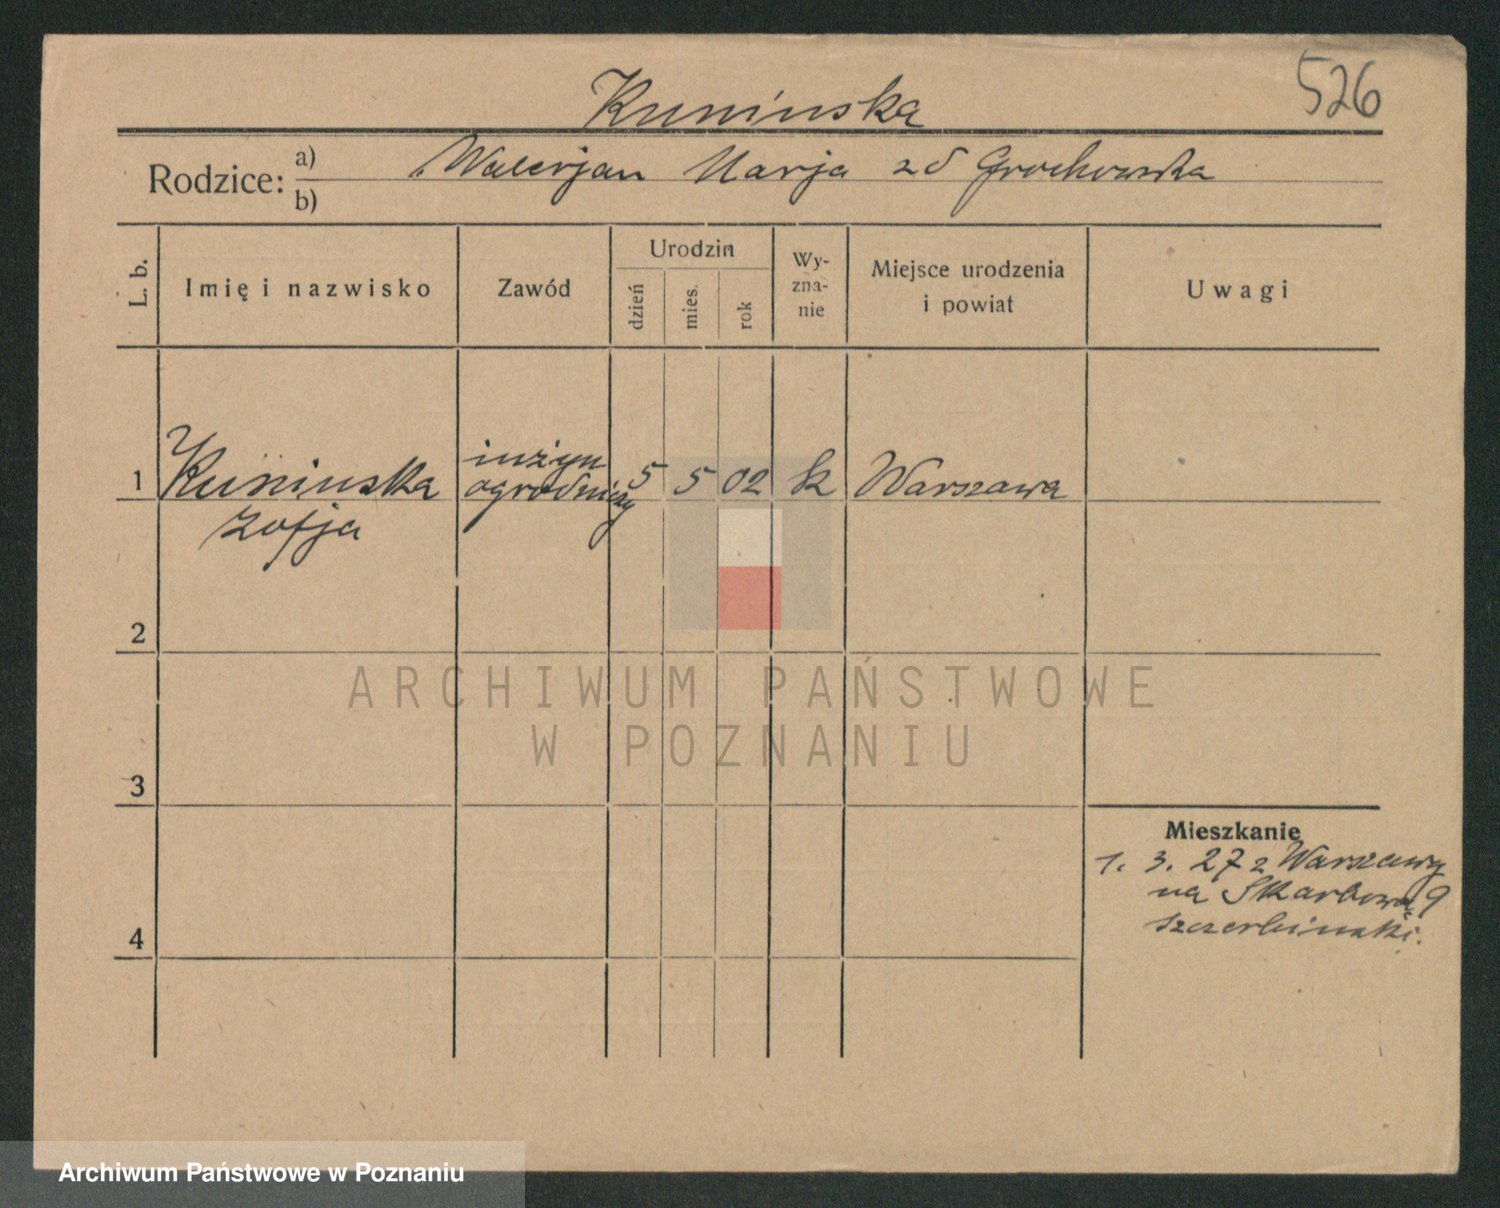 526
Kuninska
Rodzice: a) Walerjan Marja zd Grochowska
b)
L. b.
Imię i nazwisko
Zawód
Urodzin
dzień
mies.
rok
Wy-
zna-
nie
Miejsce urodzenia
i powiat
Uwagi
1 Kuninska inżyn 5 5 02 k Warszawa
Zofja ogrodniczy
2
3
4
Mieszkanie
1. 3. 27 z Warszawy
na Skarbowa 9
Szczerbinski.
ARCHIWUM PAŃSTWOWE
W POZNANIU
Archiwum Państwowe w Poznaniu